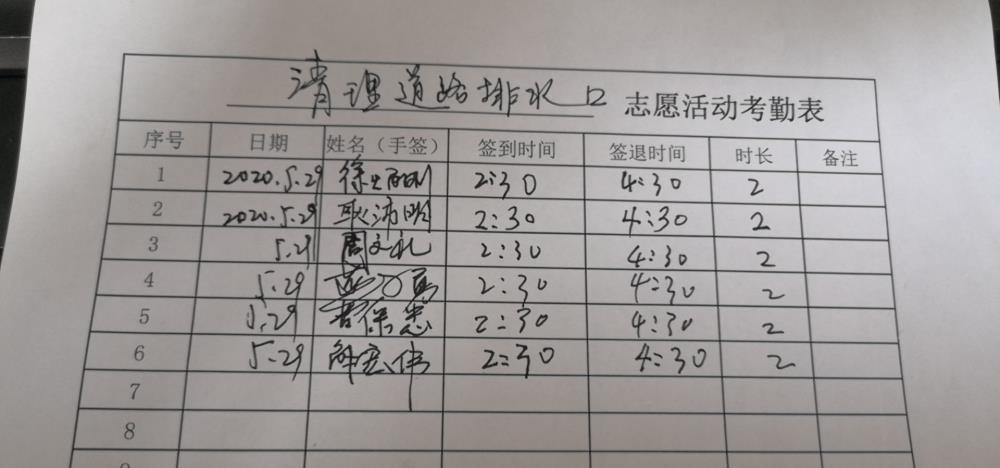 清理道路排水口 志愿活动考勤表
序号 日期 姓名（手签） 签到时间 签退时间 时长 备注
1 2020.5.29 徐 2:30 4:30 2
2 2020.5.29 耿沛明 2:30 4:30 2
3 5.29 周文礼 2:30 4:30 2
4 5.29 2:30 4:30 2
5 5.29 2:30 4:30 2
6 5.29 解宏伟 2:30 4:30 2
7
8